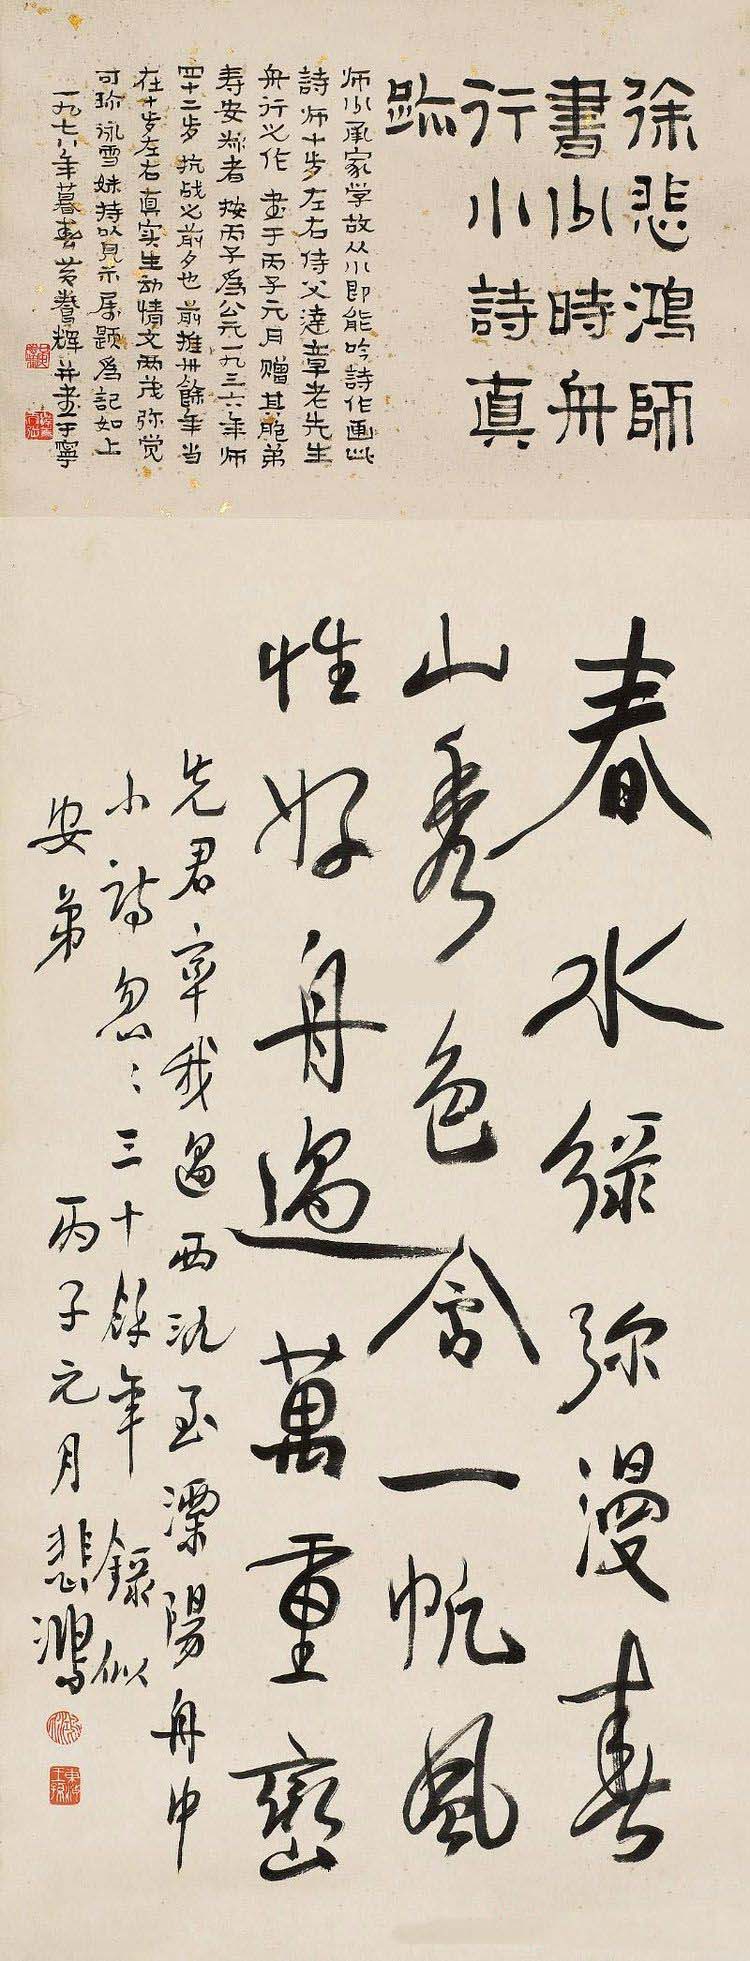 徐悲鴻師
書少時舟
行小詩真
跡
师少承家学故从小即能吟詩作画此
詩师十步左右侍父達章老先生
舟行之作 書于丙子元月赠其胞弟
寿安叔者 按丙子爲公元一九三六年师
四十二步 抗战之前夕也 前推卅餘年当
在十步左右真实生动情文两茂弥觉
可珍 咏雪妹持以見示属题爲記如上
一九七八年暮春黄養辉并書于寧
春水綠弥漫春
山秀色含一帆風
性好舟過萬重巒
先君率我過西氿至溧陽舟中
小詩忽忽三十餘年 錄似
安弟 丙子元月 悲鴻